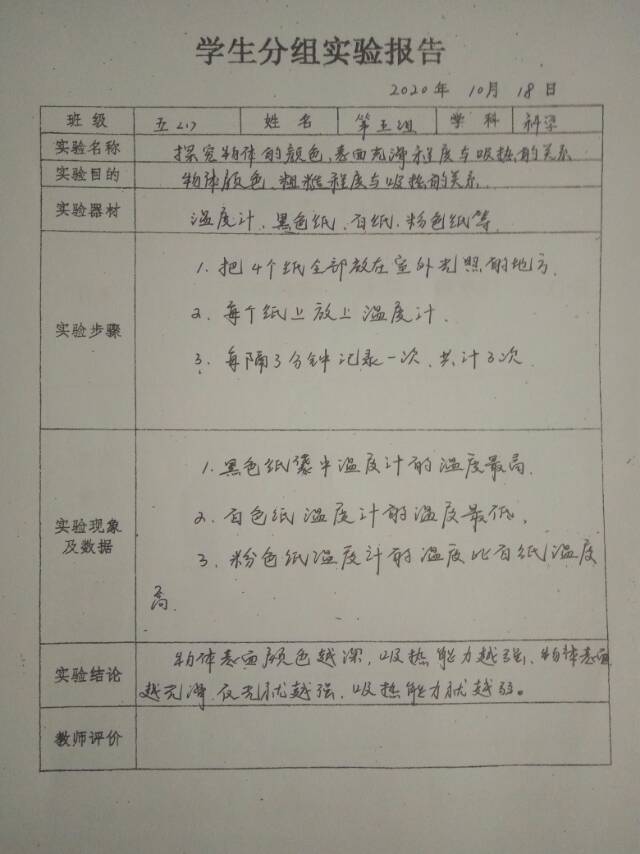 学生分组实验报告
2020年 10月 18日
班级 五(1) 姓名 第五组 学科 科学
实验名称 探究物体的颜色、表面光滑程度与吸热的关系
实验目的 物体颜色、粗糙程度与吸热的关系
实验器材 温度计、黑色纸、白纸、粉色纸等
1. 把4个纸全部放在室外光照的地方
实验步骤 2. 每个纸上放上温度计.
3. 每隔3分钟记录一次,共计3次
1. 黑色纸袋中温度计的温度最高.
实验现象 2. 白色纸温度计的温度最低.
及数据 3. 粉色纸温度计的温度比白纸温度
高.
实验结论 物体表面颜色越深,吸热能力越强、物体表面
越光滑,反光就越强,吸热能力就越弱。
教师评价